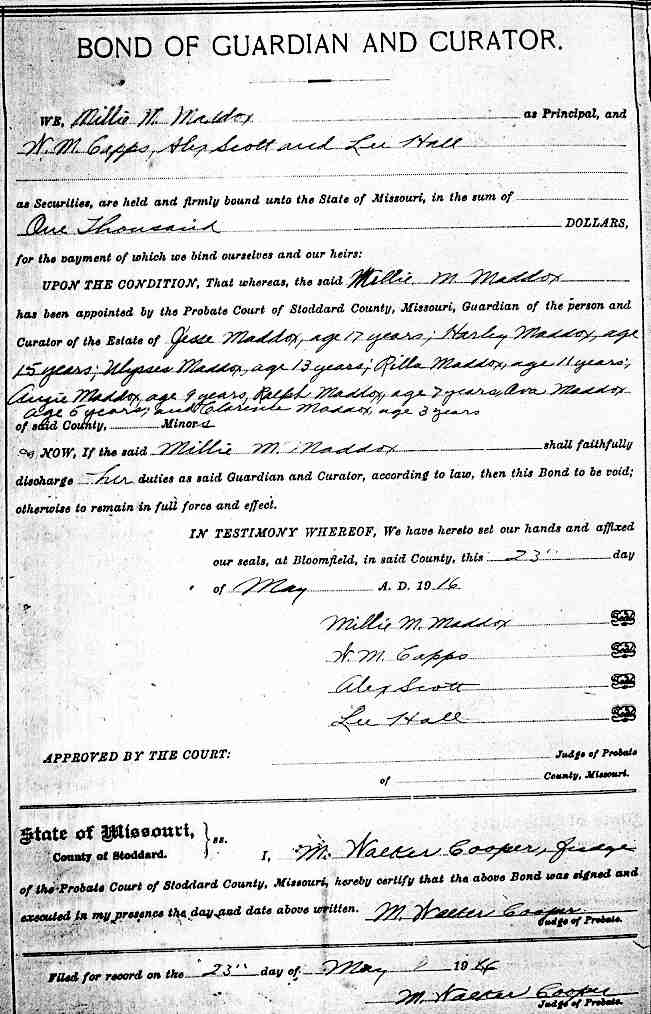 BOND OF GUARDIAN AND CURATOR.
WE, Millie M. Maddox as Principal, and
W. M. Capps, Alex Scott and Lee Hall
as Securities, are held and firmly bound unto the State of Missouri, in the sum of
One Thousand DOLLARS,
for the payment of which we bind ourselves and our heirs:
UPON THE CONDITION, That whereas, the said Millie M. Maddox
has been appointed by the Probate Court of Stoddard County, Missouri, Guardian of the person and
Curator of the Estate of Jesse Maddox, age 17 years; Harley Maddox, age
15 years; Ulysses Maddox, age 13 years; Rilla Maddox, age 11 years;
Angie Maddox, age 9 years, Ralph Maddox, age 7 years, Ava Maddox
age 5 years, and Clarence Maddox, age 3 years
of said County, Minors
NOW, If the said Millie M. Maddox shall faithfully
discharge her duties as said Guardian and Curator, according to law, then this Bond to be void;
otherwise to remain in full force and effect.
IN TESTIMONY WHEREOF, We have hereto set our hands and affixed
our seals, at Bloomfield, in said County, this 23" day
of May A. D. 1916
Millie M. Maddox Seal
W. M. Capps Seal
Alex Scott Seal
Lee Hall Seal
APPROVED BY THE COURT: Judge of Probate
of County, Missouri.
State of Missouri, } ss.
County of Stoddard. I, M. Walker Cooper, Judge
of the Probate Court of Stoddard County, Missouri, hereby certify that the above Bond was signed and
executed in my presence the day and date above written. M. Walker Cooper
Judge of Probate.
Filed for record on the 23" day of May 1916
M. Walker Cooper
Judge of Probate.